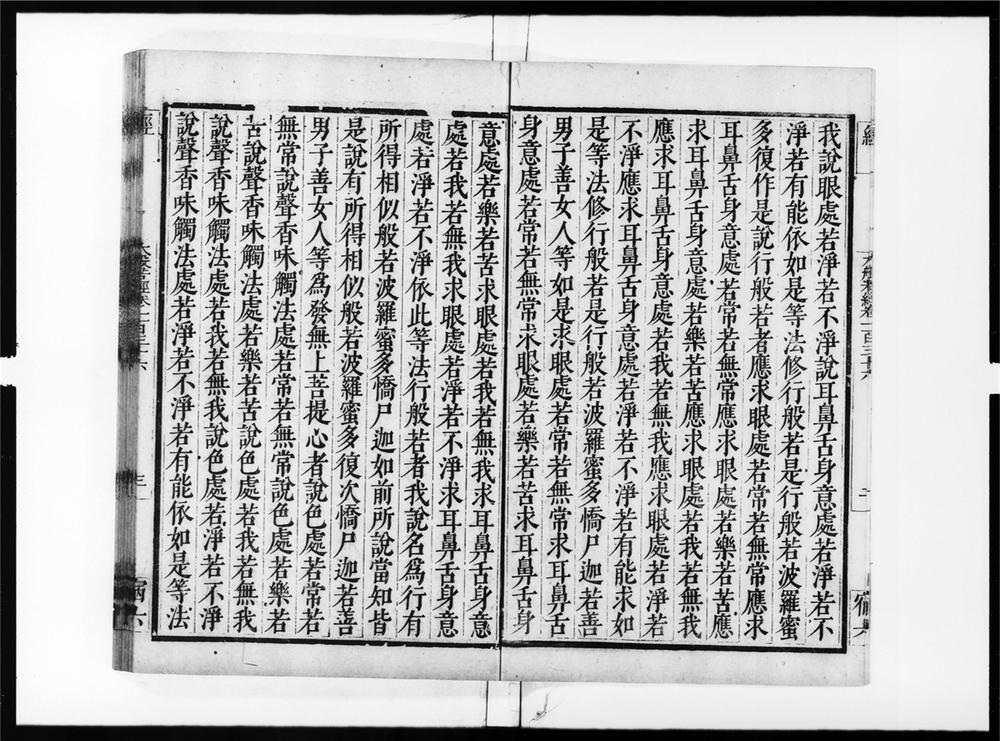 經 大般若經卷一百三十六 二 宿六
我說眼處若淨若不淨說耳鼻舌身意處若淨若不
淨若有能依如是等法修行般若是行般若波羅蜜
多復作是說行般若者應求眼處若常若無常應求
耳鼻舌身意處若常若無常應求眼處若樂若苦應
求耳鼻舌身意處若樂若苦應求眼處若我若無我
應求耳鼻舌身意處若我若無我應求眼處若淨若
不淨應求耳鼻舌身意處若淨若不淨若有能求如
是等法修行般若是行般若波羅蜜多憍尸迦若善
男子善女人等如是求眼處若常若無常求耳鼻舌
身意處若常若無常求眼處若樂若苦求耳鼻舌身
意處若樂若苦求眼處若我若無我求耳鼻舌身意
處若我若無我求眼處若淨若不淨求耳鼻舌身意
處若淨若不淨依此等法行般若者我說名爲行有
所得相似般若波羅蜜多憍尸迦如前所說當知皆
是說有所得相似般若波羅蜜多復次憍尸迦若善
男子善女人等爲發無上菩提心者說色處若常若
無常說聲香味觸法處若常若無常說色處若樂若
苦說聲香味觸法處若樂若苦說色處若我若無我
說聲香味觸法處若我若無我說色處若淨若不淨
說聲香味觸法處若淨若不淨若有能依如是等法
經 大般若經卷一百三十六 三 宿六